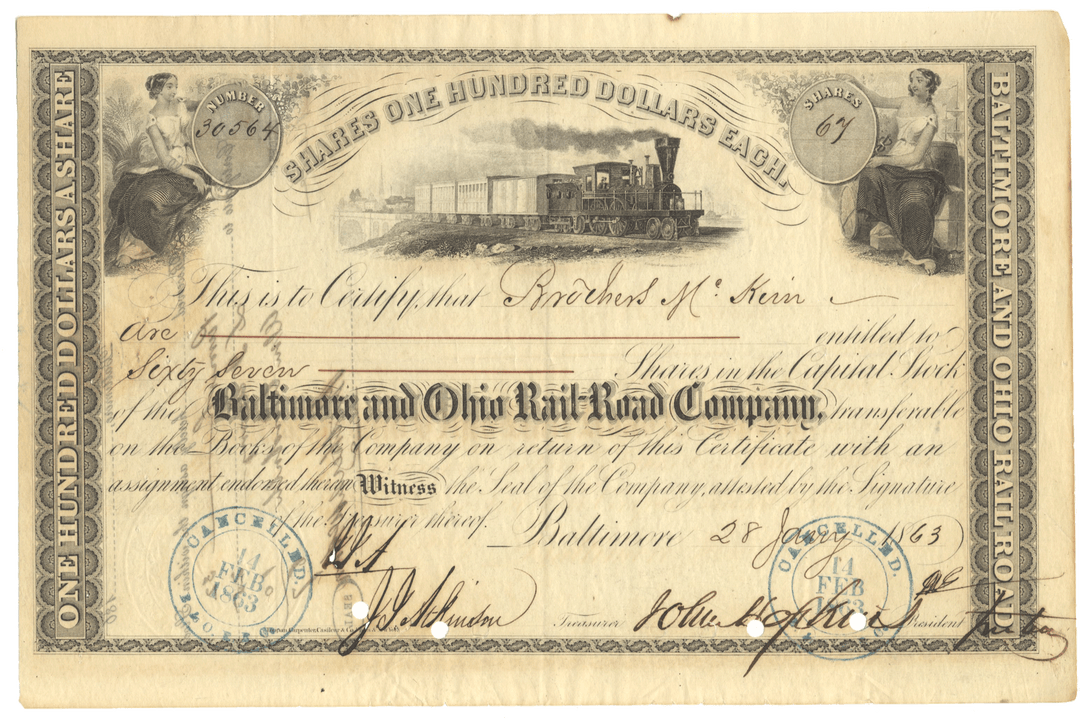 ONE HUNDRED DOLLARS A SHARE
NUMBER
30564
SHARES ONE HUNDRED DOLLARS EACH.
SHARES
67
BALTIMORE AND OHIO RAILROAD
This is to Certify, that Brothers Mc Keim
are entitled to
Sixty Seven Shares in the Capital Stock
of the Baltimore and Ohio Rail-Road Company, transferable
on the Books of the Company on return of this Certificate with an
assignment endorsed thereon Witness the Seal of the Company, attested by the Signature
of the Treasurer thereof. Baltimore 28 Jany 1863
CANCELLED.
14
FEB
1863
CANCELLED.
14
FEB
1863
SEAL
J. I. Atkinson Treasurer Johns Hopkins President pro tem